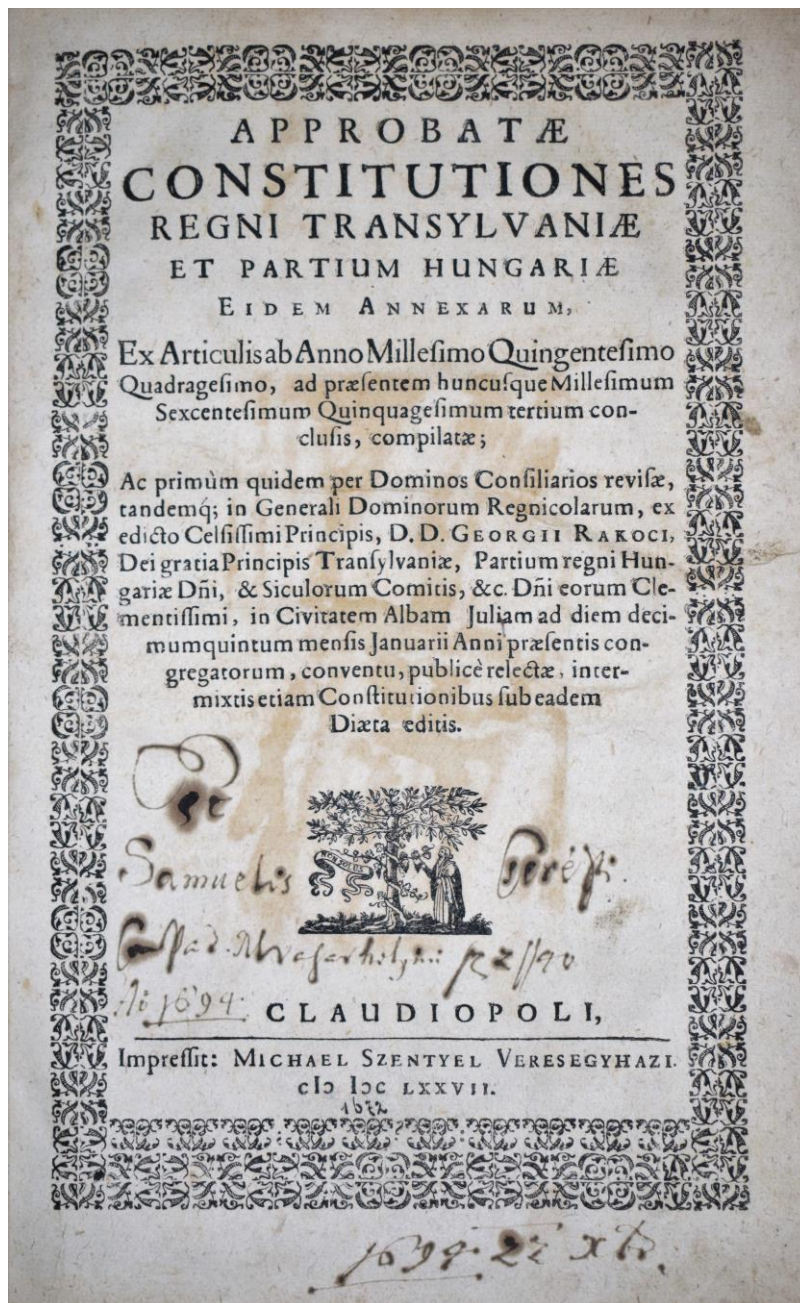 APPROBATÆ
CONSTITUTIONES
REGNI TRANSYLVANIÆ
ET PARTIUM HUNGARIÆ
EIDEM ANNEXARUM,
Ex Articulis ab Anno Millesimo Quingentesimo
Quadragesimo, ad præsentem huncusque Millesimum
Sexcentesimum Quinquagesimum tertium con-
clusis, compilatæ;
Ac primùm quidem per Dominos Consiliarios revisæ,
tandemq́; in Generali Dominorum Regnicolarum, ex
edicto Celsissimi Principis, D. D. GEORGII RAKOCI,
Dei gratia Principis Transylvaniæ, Partium regni Hun-
gariæ Dñi, & Siculorum Comitis, &c. Dñi eorum Cle-
mentissimi, in Civitatem Albam Juliam ad diem deci-
mumquintum mensis Januarii Anni præsentis con-
gregatorum, conventu, publicè relectæ, inter-
mixtis etiam Constitutionibus sub eadem
Diæta editis.
Samuelis
1694.
CLAUDIOPOLI,
Impressit: MICHAEL SZENTYEL VERESEGYHAZI.
cIɔ Iɔc LXXVII.
1694. 27 xbr.